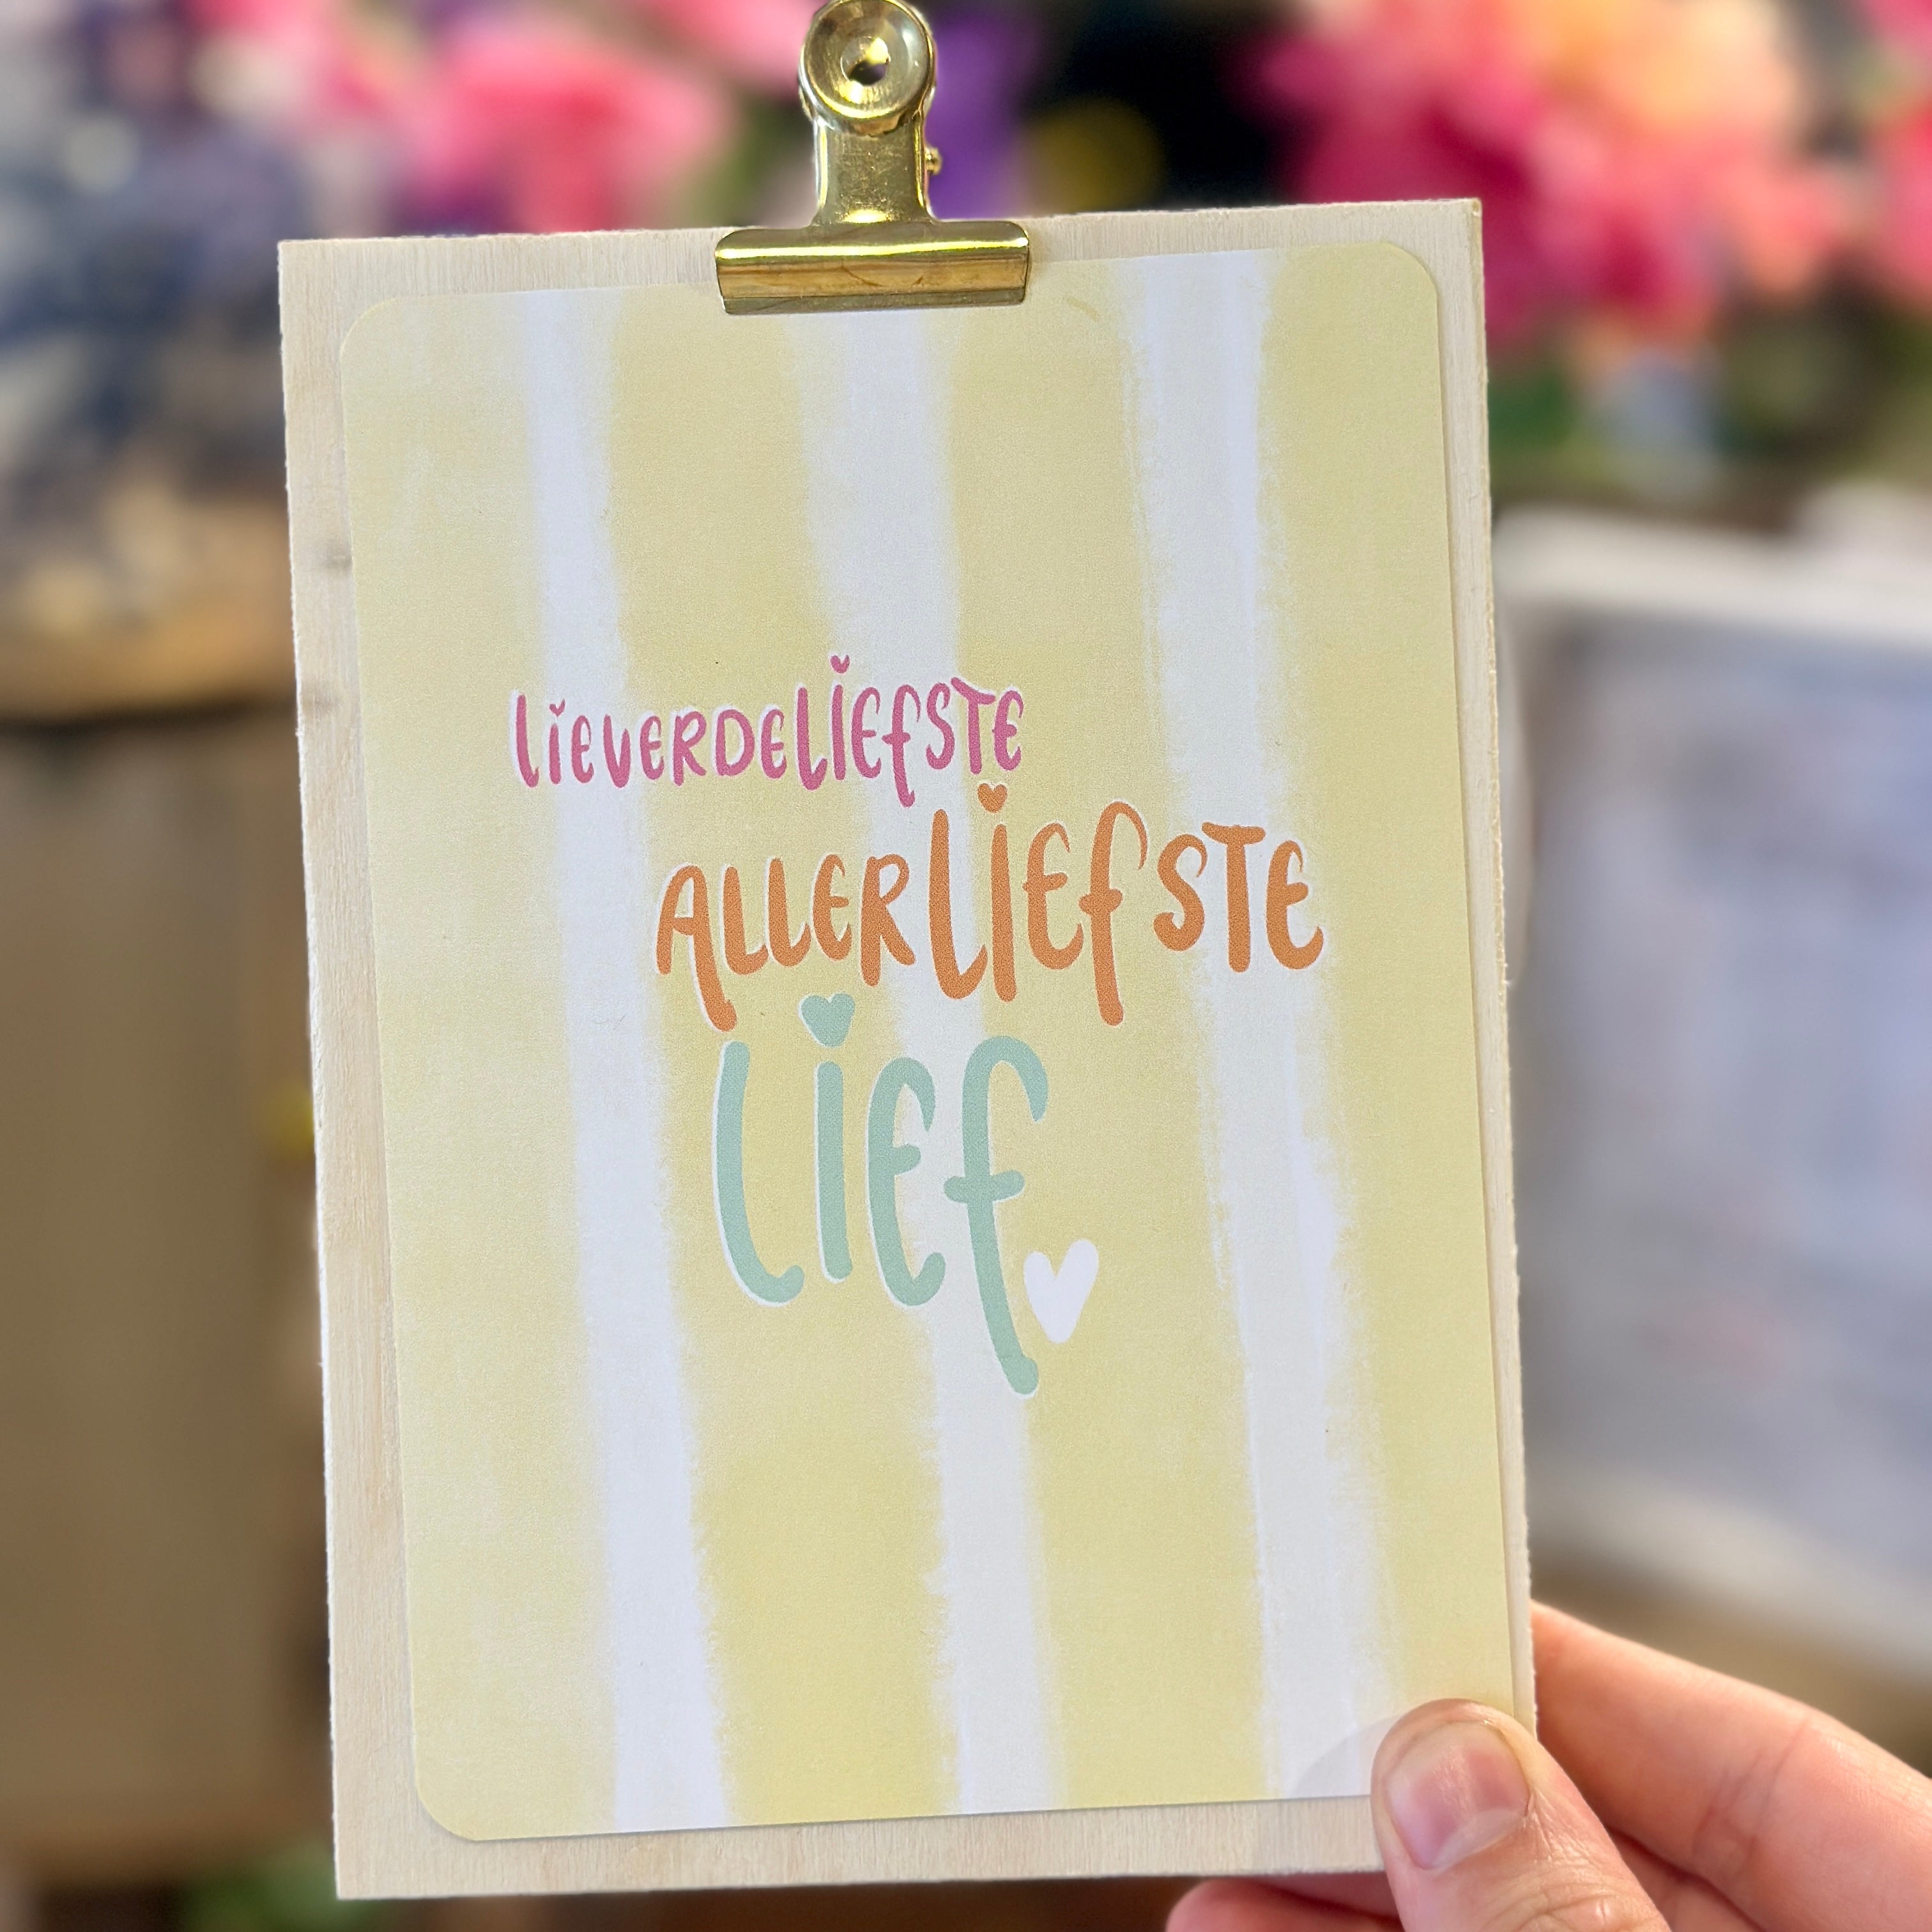 LIEVERDELIEFSTE
ALLERLIEFSTE
LIEF